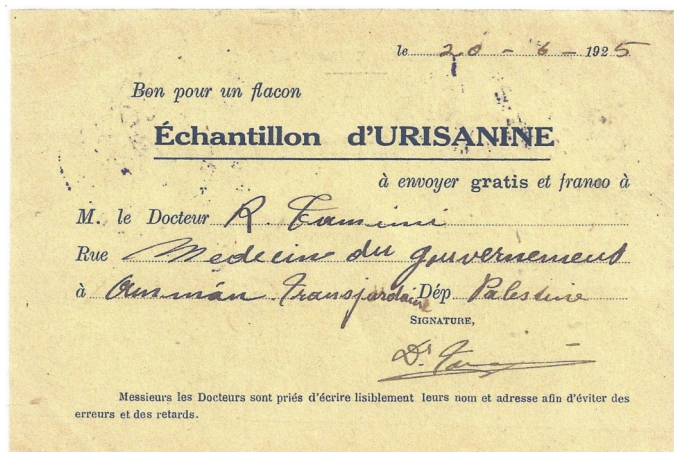 le 20 - 6 - 1925
Bon pour un flacon
Échantillon d'URISANINE
à envoyer gratis et franco à
M. le Docteur R. Tamimi
Rue Medecin du gouvernement
à Ammán Transjordanie Dép Palestine
SIGNATURE,
Dr. Tamimi
Messieurs les Docteurs sont priés d'écrire lisiblement leurs nom et adresse afin d'éviter des
erreurs et des retards.